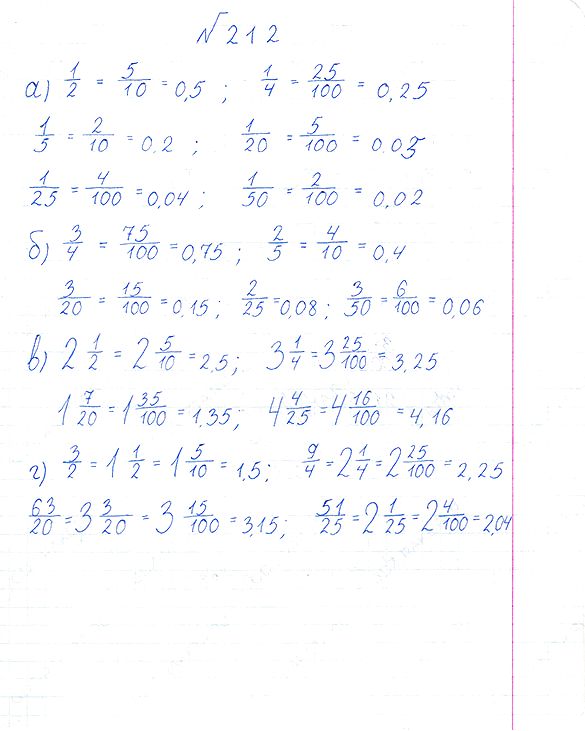 № 212
а) 1/2 = 5/10 = 0,5 ; 1/4 = 25/100 = 0,25
1/5 = 2/10 = 0,2 ; 1/20 = 5/100 = 0,05
1/25 = 4/100 = 0,04 ; 1/50 = 2/100 = 0,02
б) 3/4 = 75/100 = 0,75 ; 2/5 = 4/10 = 0,4
3/20 = 15/100 = 0,15 ; 2/25 = 0,08 ; 3/50 = 6/100 = 0,06
в) 2 1/2 = 2 5/10 = 2,5 ; 3 1/4 = 3 25/100 = 3,25
1 7/20 = 1 35/100 = 1,35 ; 4 4/25 = 4 16/100 = 4,16
г) 3/2 = 1 1/2 = 1 5/10 = 1,5 ; 9/4 = 2 1/4 = 2 25/100 = 2,25
63/20 = 3 3/20 = 3 15/100 = 3,15 ; 51/25 = 2 1/25 = 2 4/100 = 2,04